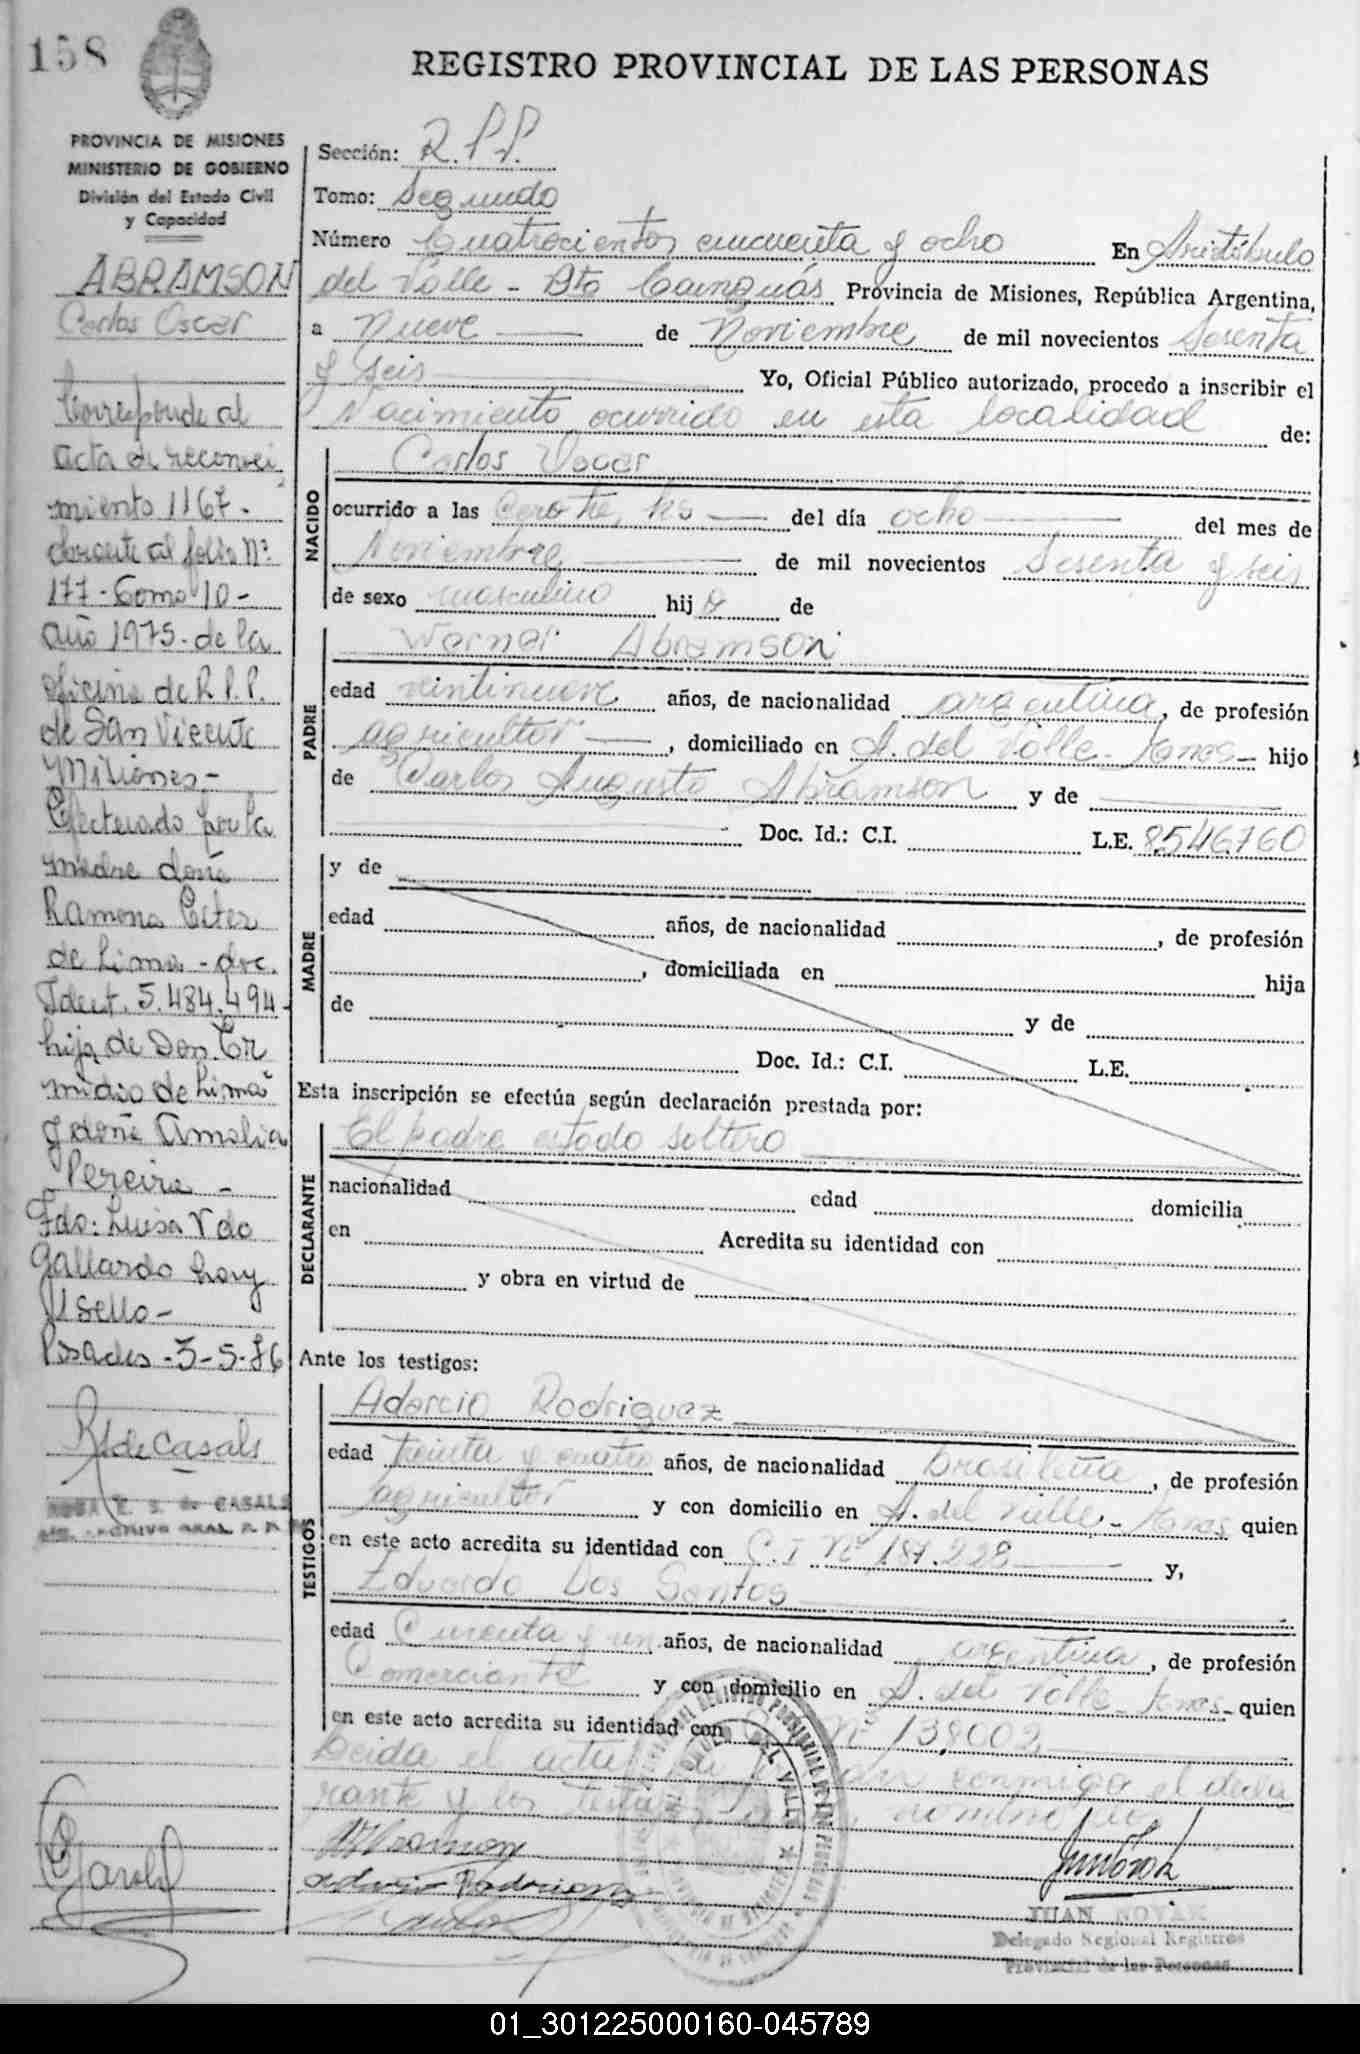 158
REGISTRO PROVINCIAL DE LAS PERSONAS
PROVINCIA DE MISIONES
MINISTERIO DE GOBIERNO
División del Estado Civil
y Capacidad
ABRAMSON
Carlos Oscar
Corresponde al
acta de reconoci
miento 1167.
obrante al folio Nº
177 - Tomo 10 -
año 1975. de la
oficina de R.P.P.
de San Vicente
Misiones -
Efectuado por la
madre doña
Ramona Ester
de Lima - doc.
Ident. 5.484.494 -
hija de Don
de Lima
y doña Amalia
Pereira -
Fdo: Luisa V do
Gallardo hay
Un sello -
Posadas - 5-5-86
R de Casals
ROSA E. S. de CASALS
ARCHIVO GRAL.
Sección: R.P.P.
Tomo: Segundo
Número Cuatrocientos cincuenta y ocho En Aristóbulo
del Valle - Dto Cainguás Provincia de Misiones, República Argentina,
a Nueve de Noviembre de mil novecientos Sesenta
y seis Yo, Oficial Público autorizado, procedo a inscribir el
Nacimiento ocurrido en esta localidad de:
NACIDO
Carlos Oscar
ocurrido a las Cero tres hs del día ocho del mes de
Noviembre de mil novecientos Sesenta y seis
de sexo masculino hijo de
PADRE
Werner Abramson
edad veintinueve años, de nacionalidad argentina, de profesión
agricultor, domiciliado en A. del Valle - Mnes - hijo
de Carlos Augusto Abramson y de
Doc. Id.: C.I. L.E. 8.546.760
MADRE
y de
edad años, de nacionalidad , de profesión
, domiciliada en hija
de y de
Doc. Id.: C.I. L.E.
Esta inscripción se efectúa según declaración prestada por:
DECLARANTE
El padre estado soltero
nacionalidad edad domicilia
en Acredita su identidad con
y obra en virtud de
Ante los testigos:
TESTIGOS
Adarcio Rodriguez
edad treinta y cuatro años, de nacionalidad brasileña, de profesión
agricultor y con domicilio en A. del Valle - Mnes quien
en este acto acredita su identidad con C.I Nº 187.228 y,
Eduardo Dos Santos
edad Cincuenta y un años, de nacionalidad argentina, de profesión
Comerciante y con domicilio en A. del Valle - Mnes - quien
en este acto acredita su identidad con Nº 138002
Leida el acta conmigo el decla
rante y los testigos nombrados
JUAN NOVAK
Delegado Regional Registros
Provincial de las Personas
01_301225000160-045789